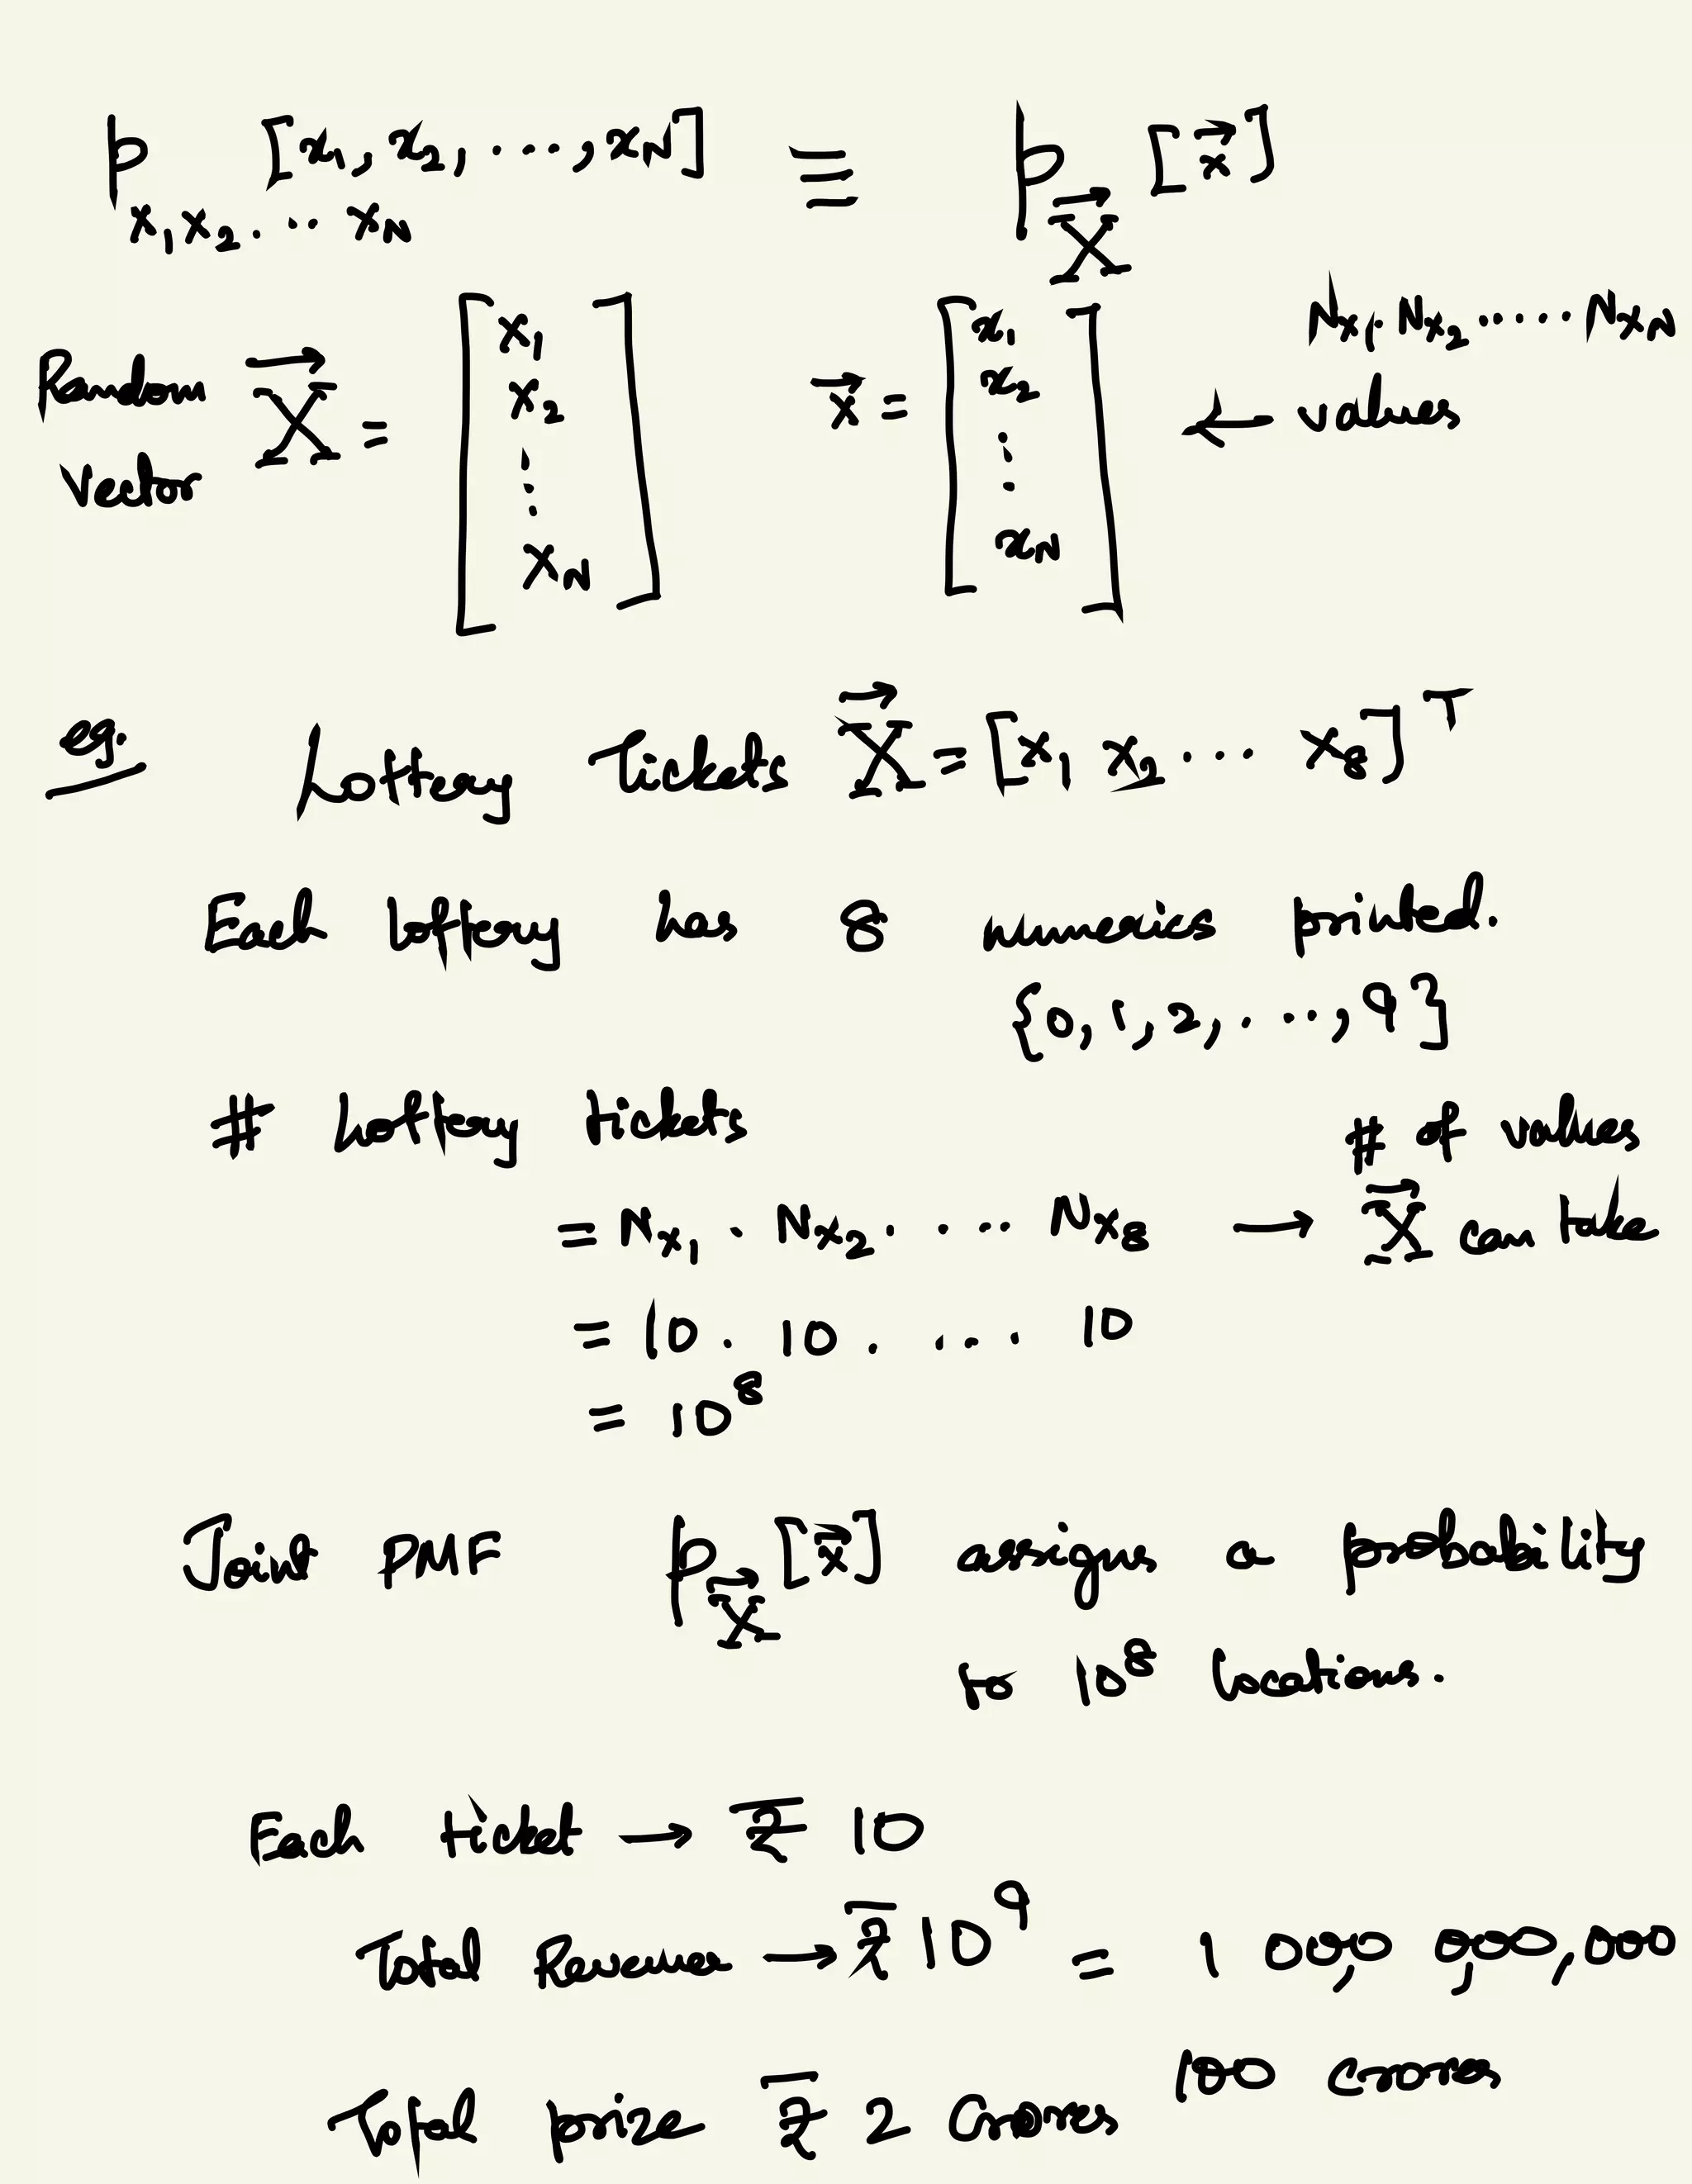 p_{X_1 X_2 ... X_N} [x_1, x_2, ..., x_N] ≡ p_{\vec{X}} [\vec{x}]
Random vector \vec{X} = [X_1 X_2 ⋮ X_N] \vec{x} = [x_1 x_2 ⋮ x_N] ← N_{X_1} . N_{X_2} ..... N_{X_N} values
eg. Lottery Tickets \vec{X} = [X_1 X_2 ... X_8]^T
Each lottery has 8 numerics printed.
{0, 1, 2, ..., 9}
# Lottery tickets
= N_{X_1} . N_{X_2} . ... N_{X_8} → # of values \vec{X} can take
= 10 . 10 . ... 10
= 10^8
Joint PMF p_{\vec{X}} [\vec{x}] assigns a probability
to 10^8 locations.
Each ticket → ₹ 10
Total Revenue → ₹ 10^9 = 1 00,0 0,00,000
100 crores
Total prize ₹ 2 Crores